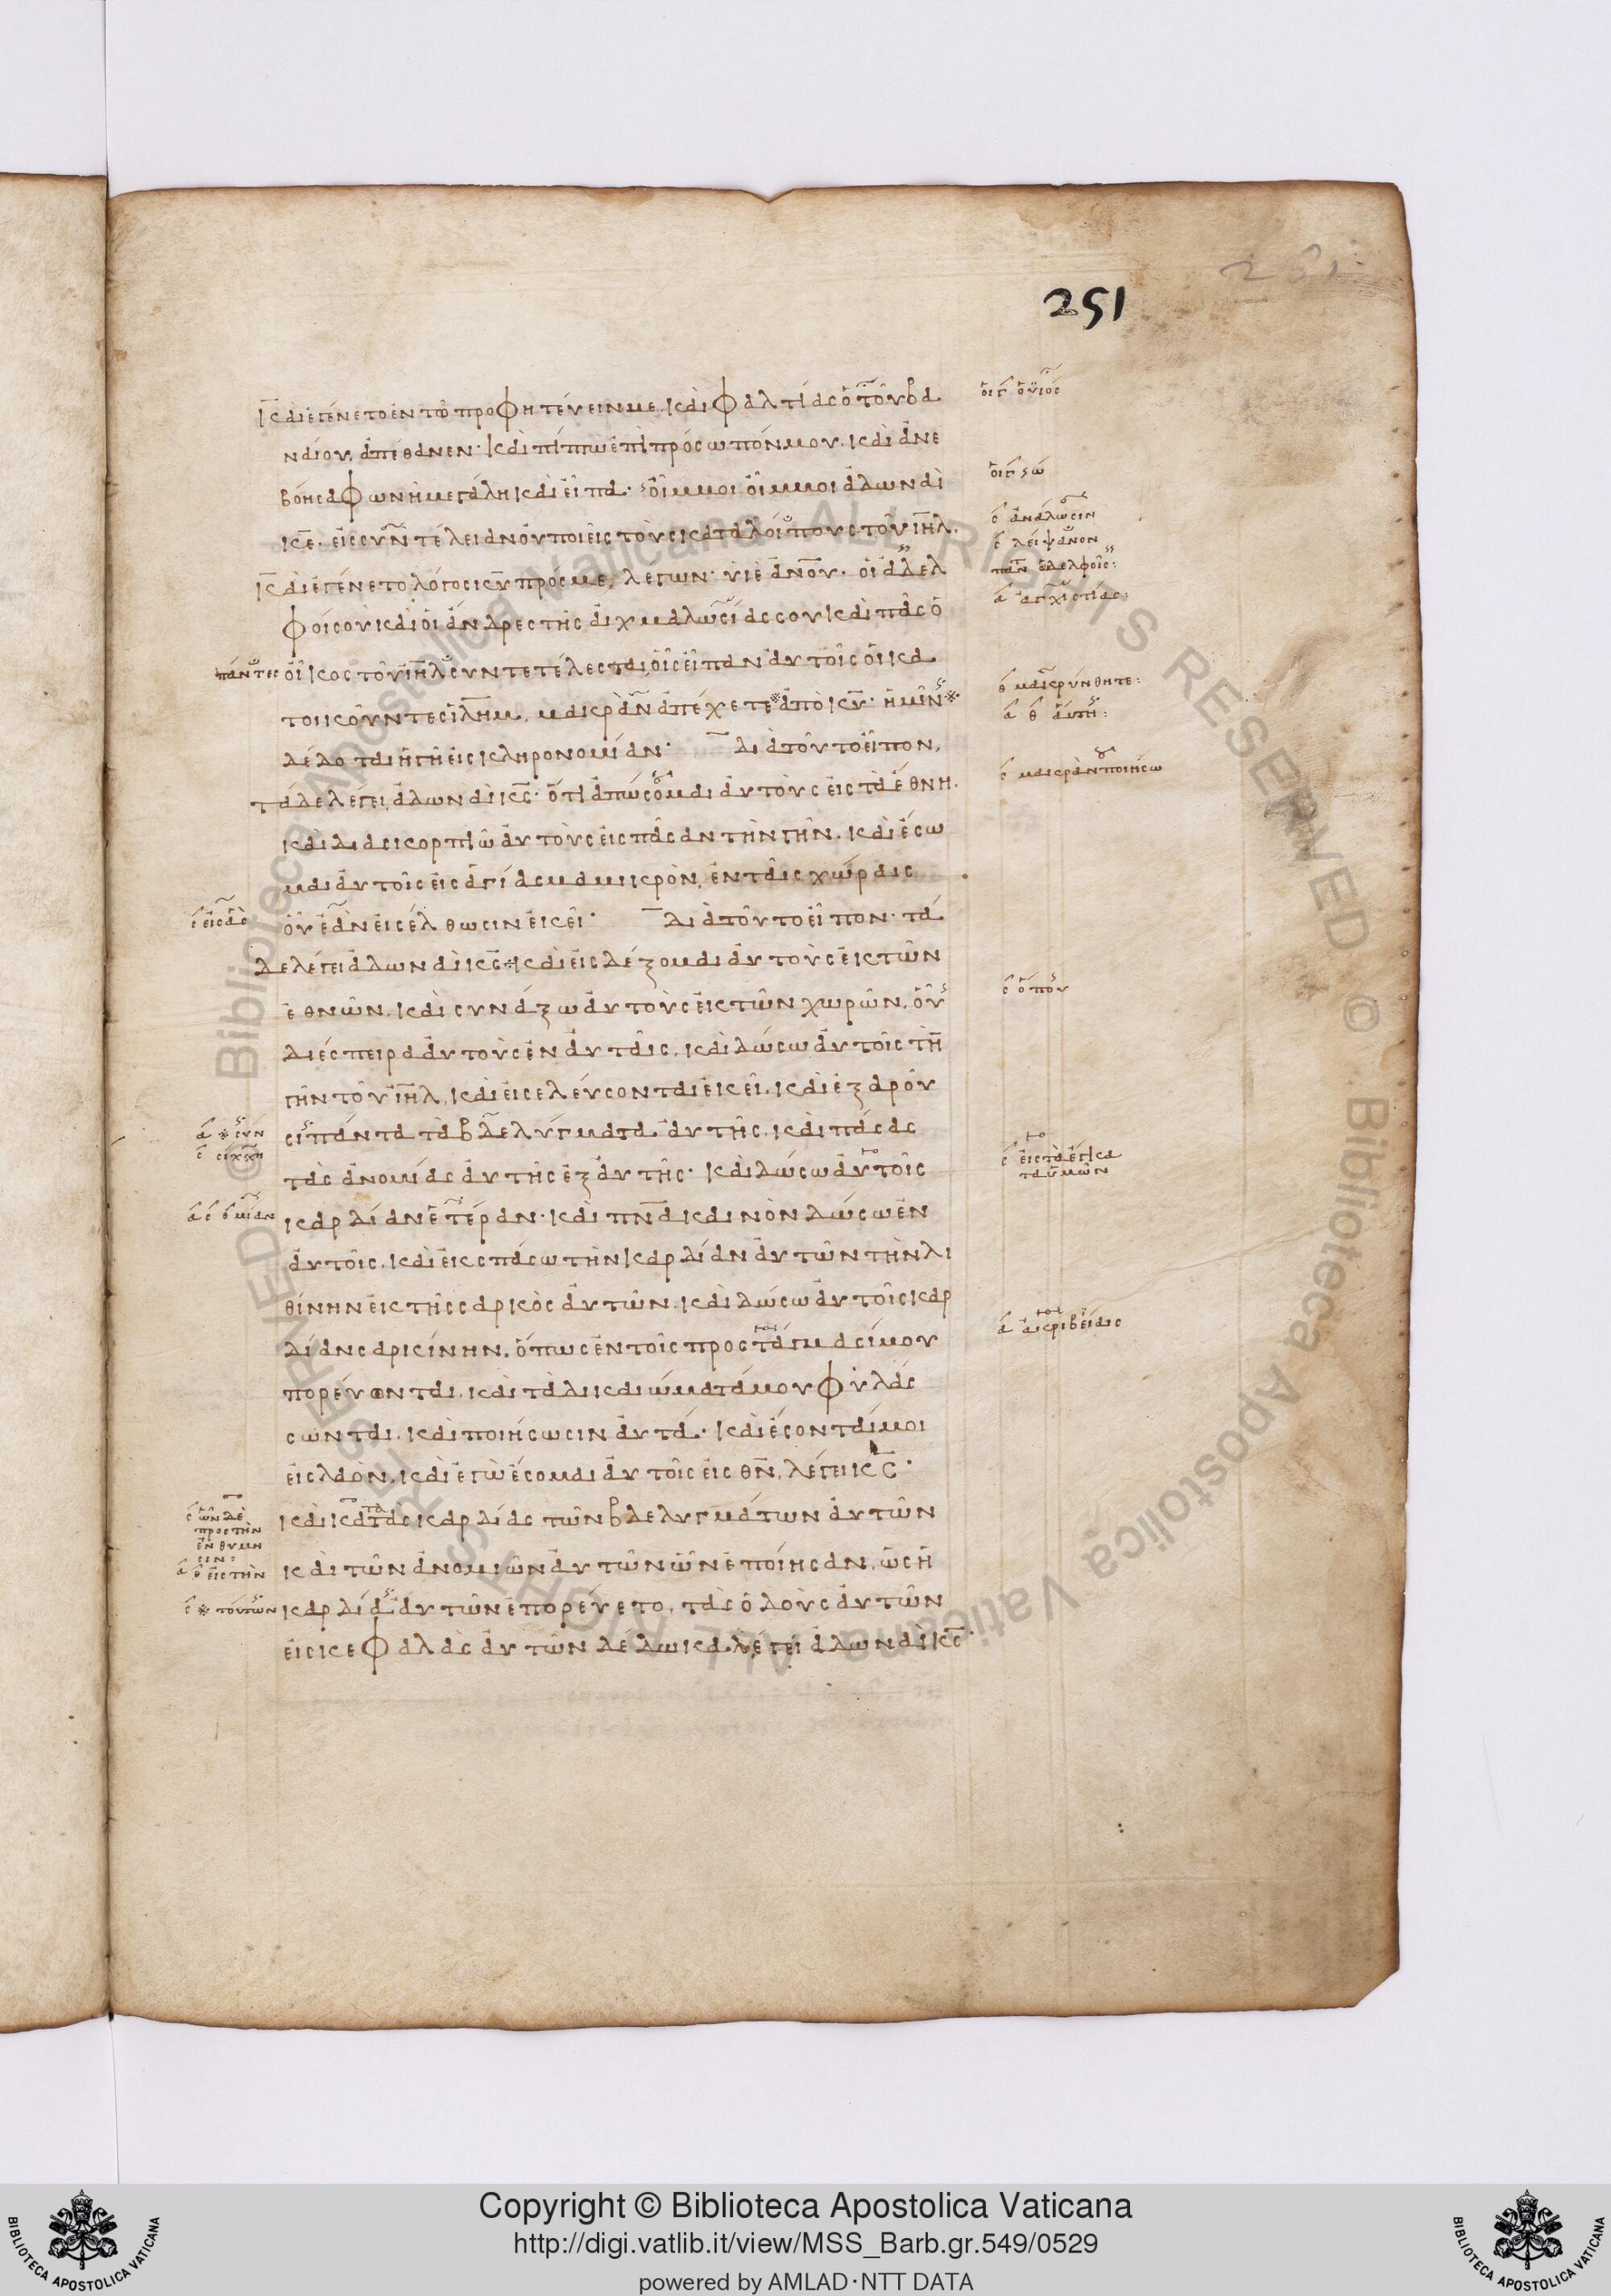 251
καὶ ἐγένετο ἐν τῷ προφητεύειν με. καὶ φαλτίας ὁ τοῦ βα
οἱ γ΄ ὁ υἱός
ναίου, ἀπέθανεν· καὶ πίπτω ἐπὶ πρόσωπόν μου. καὶ ἀνε
βόησα φωνῇ μεγάλῃ καὶ εἶπα· οἴμμοι οἴμμοι ἀδωναὶ
κ̅ε̅. εἰς συντέλειαν σὺ ποιεῖς τοὺς καταλοίπους τοῦ ι̅η̅λ̅.
σ΄ ἀνάλωσιν
σ΄ λείψανον
καὶ ἐγένετο λόγος κ̅υ̅ πρός με, λέγων· υἱὲ ἀ̅ν̅ο̅υ̅. οἱ ἀδελ
φοί σου καὶ οἱ ἄνδρες τῆς αἰχμαλωσίας σου καὶ πᾶς ὁ
οἶκος τοῦ ι̅η̅λ̅ συντετέλεσται, οἷς εἶπαν αὐτοῖς οἱ κα
τοικοῦντες ι̅λ̅η̅μ̅, μακρὰν ἀπέχετε ἀπὸ κ̅υ̅· ἡμῖν
θ΄ μακρύνθητε:
δέδοται ἡ γῆ εἰς κληρονομίαν· διὰ τοῦτο εἶπον,
τάδε λέγει, ἀδωναὶ κ̅ς̅· ὅτι ἀπώσομαι αὐτοὺς εἰς τὰ ἔθνη.
καὶ διασκορπιῶ αὐτοὺς εἰς πᾶσαν τὴν γῆν. καὶ ἔσο
μαι αὐτοῖς εἰς ἁγίασμα μικρὸν, ἐν ταῖς χώραις
οὗ ἐὰν εἰσέλθωσιν ἐκεῖ· διὰ τοῦτο εἶπον· τά
δε λέγει ἀδωναὶ κ̅ς̅· καὶ εἰσδέξομαι αὐτοὺς ἐκ τῶν
ἐθνῶν. καὶ συνάξω αὐτοὺς ἐκ τῶν χωρῶν. οὗ
σ΄ ὅπου
διέσπειρα αὐτοὺς ἐν αὐταῖς. καὶ δώσω αὐτοῖς τὴν
γῆν τοῦ ι̅η̅λ̅, καὶ εἰσελεύσονται ἐκεῖ. καὶ ἐξαροῦ
σι πάντα τὰ βδελύγματα αὐτῆς. καὶ πάσας
τὰς ἀνομίας αὐτῆς ἐξ αὐτῆς· καὶ δώσω αὐτοῖς
καρδίαν ἑτέραν· καὶ π̅ν̅α̅ καινὸν δώσω ἐν
αὐτοῖς. καὶ ἐκσπάσω τὴν καρδίαν αὐτῶν τὴν λι
θίνην ἐκ τῆς σαρκὸς αὐτῶν. καὶ δώσω αὐτοῖς καρ
δίαν σαρκίνην. ὅπως ἐν τοῖς προστάγμασί μου
α΄ ἀκριβείαις
πορεύωνται. καὶ τὰ δικαιώματά μου φυλάσ
σωνται. καὶ ποιήσωσιν αὐτά· καὶ ἔσονταί μοι
εἰς λαὸν. καὶ ἐγὼ ἔσομαι αὐτοῖς εἰς θ̅ν̅, λέγει κ̅ς̅·
καὶ κατὰ τὰς καρδίας τῶν βδελυγμάτων αὐτῶν
καὶ τῶν ἀνομιῶν αὐτῶν ὧν ἐποίησαν. ὡς ἡ
καρδία αὐτῶν ἐπορεύετο. τὰς ὁδοὺς αὐτῶν
εἰς κεφαλὰς αὐτῶν δέδωκα, λέγει ἀδωναὶ κ̅ς̅·
ALL RIGHTS RESERVED © Biblioteca Apostolica Vaticana
Copyright © Biblioteca Apostolica Vaticana
http://digi.vatlib.it/view/MSS_Barb.gr.549/0529
powered by AMLAD·NTT DATA
BIBLIOTECA APOSTOLICA VATICANA
BIBLIOTECA APOSTOLICA VATICANA